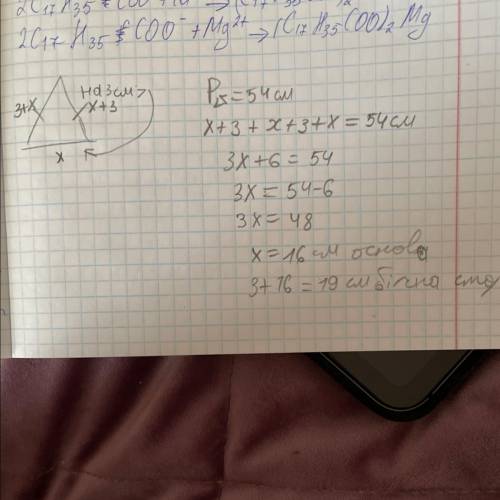 2C₁₇H₃₅COO⁻ + Mg²⁺ → (C₁₇H₃₅COO)₂Mg
на 3 см >
3+x
x+3
x
P = 54 см
x+3+x+3+x = 54 см
3x+6 = 54
3x = 54-6
3x = 48
x = 16 см основа
3+16 = 19 см бічна